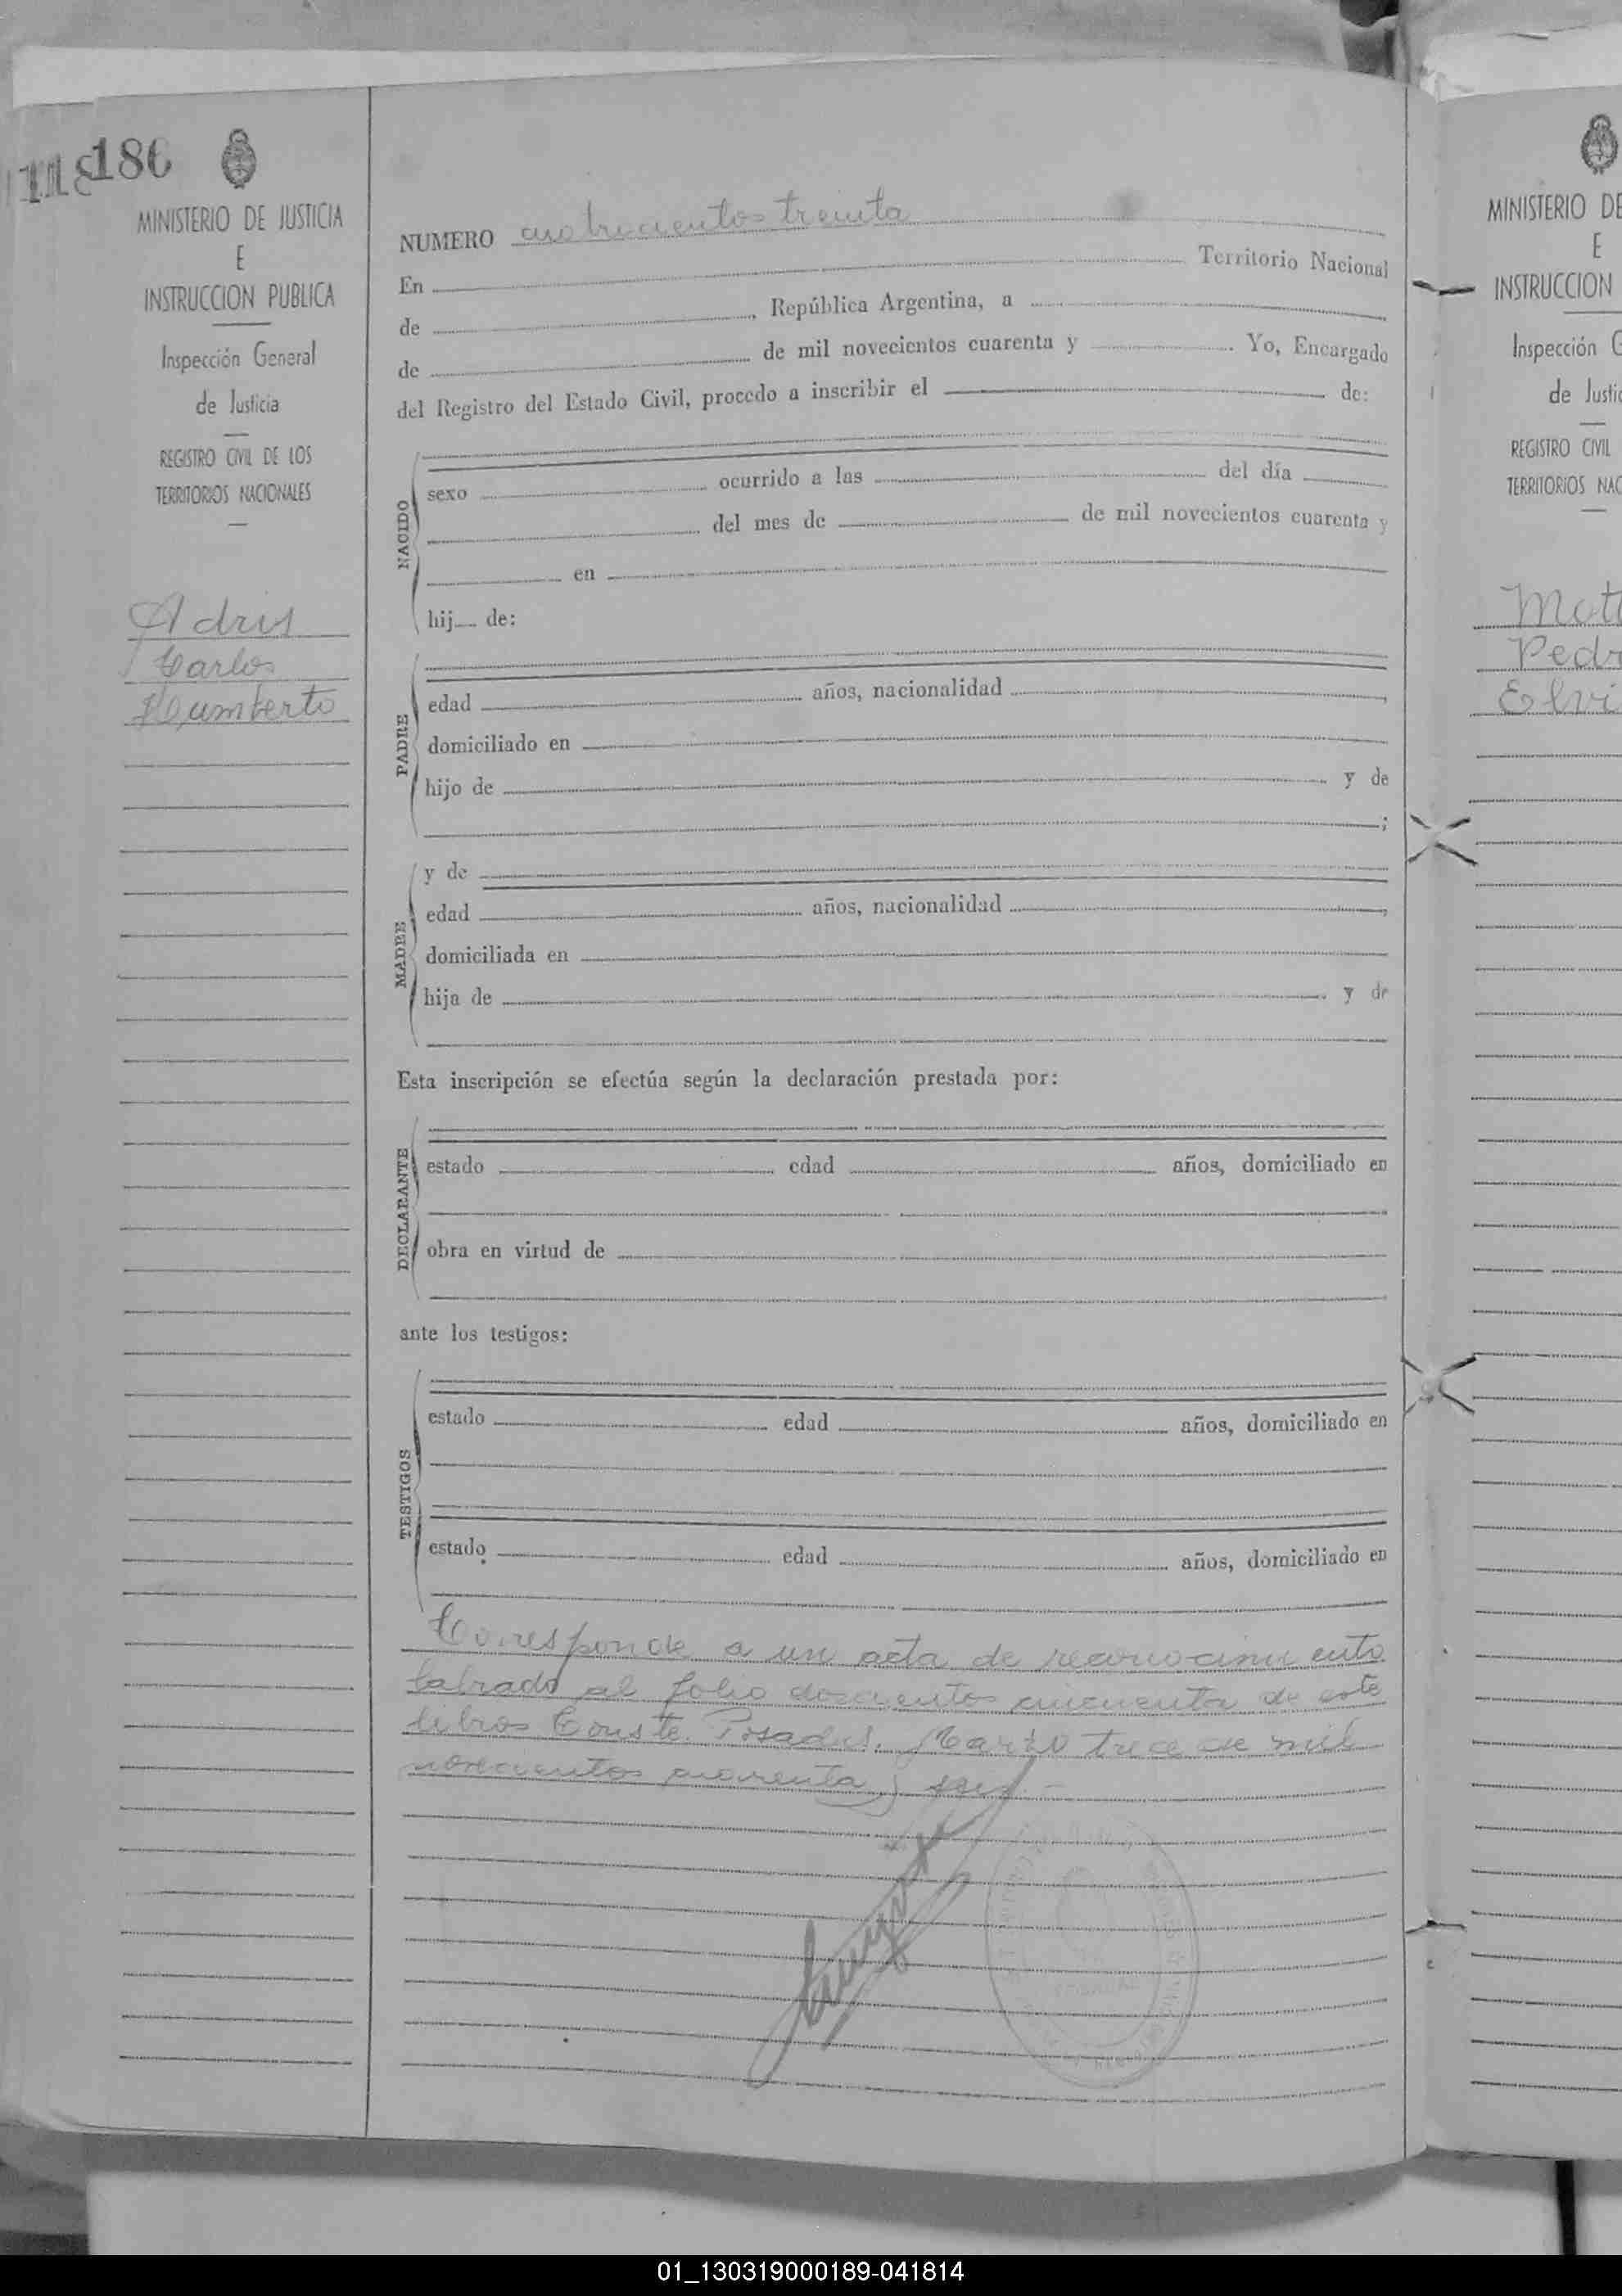 118
186
MINISTERIO DE JUSTICIA
E
INSTRUCCION PUBLICA
Inspección General
de Justicia
REGISTRO CIVIL DE LOS
TERRITORIOS NACIONALES
Adris
Carlos
Humberto
NUMERO cuatrocientos treinta
En Territorio Nacional
de , República Argentina, a
de de mil novecientos cuarenta y . Yo, Encargado
del Registro del Estado Civil, procedo a inscribir el de:
NACIDO
sexo ocurrido a las del día
del mes de de mil novecientos cuarenta y
en
hij de:
PADRE
edad años, nacionalidad ,
domiciliado en
hijo de y de
;
MADRE
y de
edad años, nacionalidad ,
domiciliada en
hija de y de
Esta inscripción se efectúa según la declaración prestada por:
DECLARANTE
estado edad años, domiciliado en
obra en virtud de
ante los testigos:
TESTIGOS
estado edad años, domiciliado en
estado edad años, domiciliado en
Corresponde a un acta de reconocimiento
labrado al folio doscientos cincuenta de este
libro. Conste. Posadas, Marzo trece de mil
novecientos cuarenta y seis.-
MINISTERIO DE
E
INSTRUCCION
Inspección G
de Justic
REGISTRO CIVIL
TERRITORIOS NAC
Mott
Pedr
Elvi
01_130319000189-041814